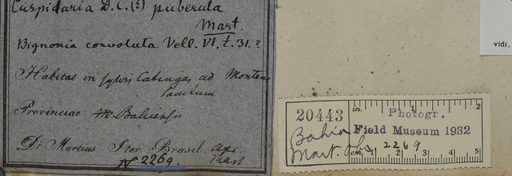 Cuspidaria D.C.(?) puberula
Mart.
Bignonia convoluta Vell. VI. t. 31. ?
Habitat in sylvis Catingas ad Montem
Sanctum
Provinciae Bahiensis
Dr. Martius Iter Brasil.
Mart
No 2269.
vidi,
20443
in. 1 2
Photogr.
Field Museum 1932
Bahia
Mart. Obs. 2269
cm. 1 2 3 4 5